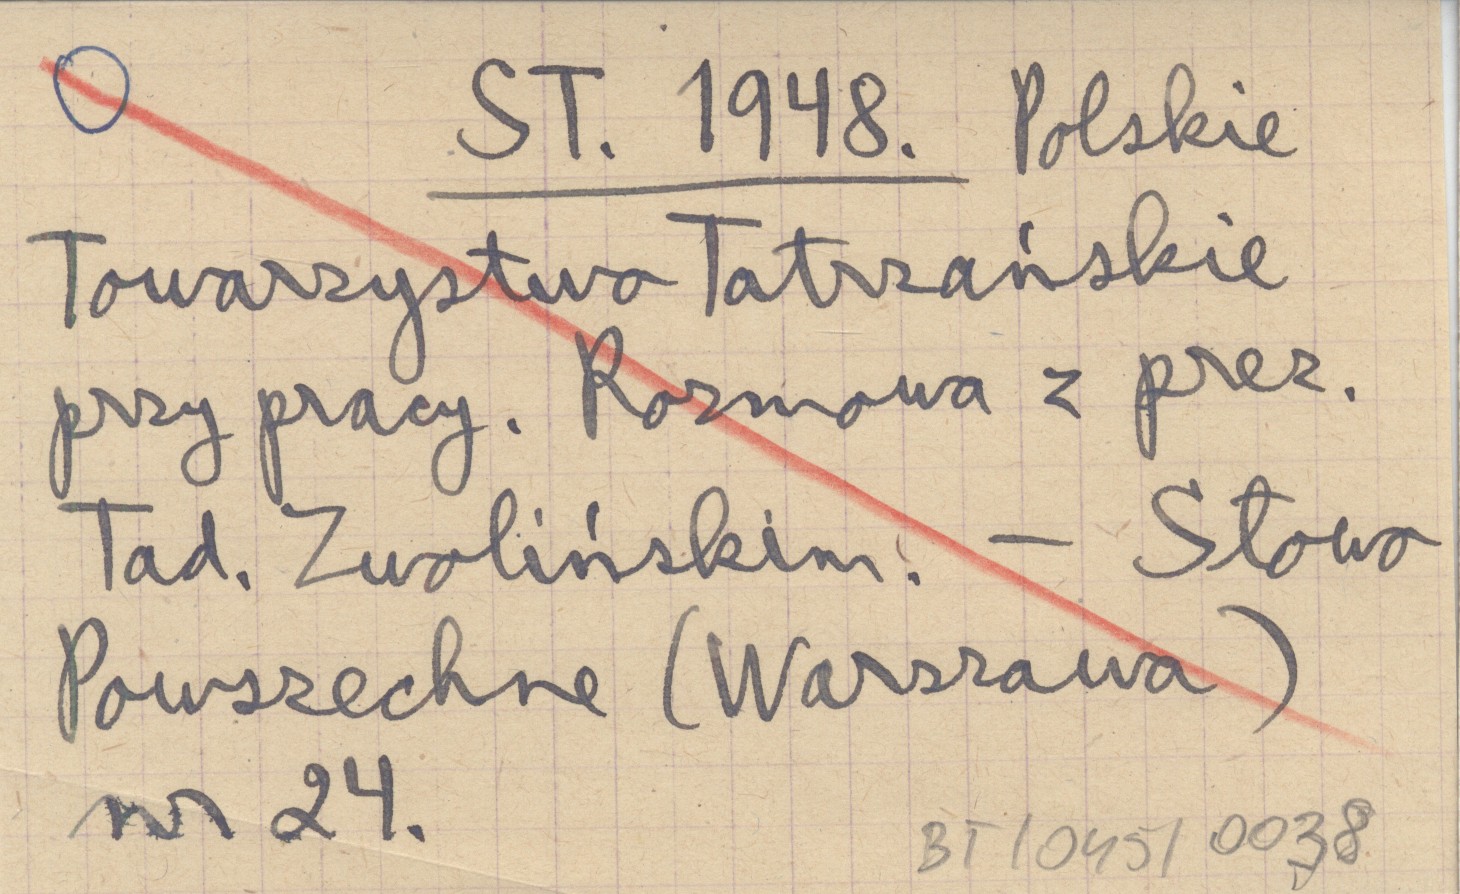 ST. 1948. Polskie
Towarzystwo Tatrzańskie
przy pracy. Rozmowa z prez.
Tad. Zwolińskim. – Słowo
Powszechne (Warszawa)
nr 24.
BT/045/0038